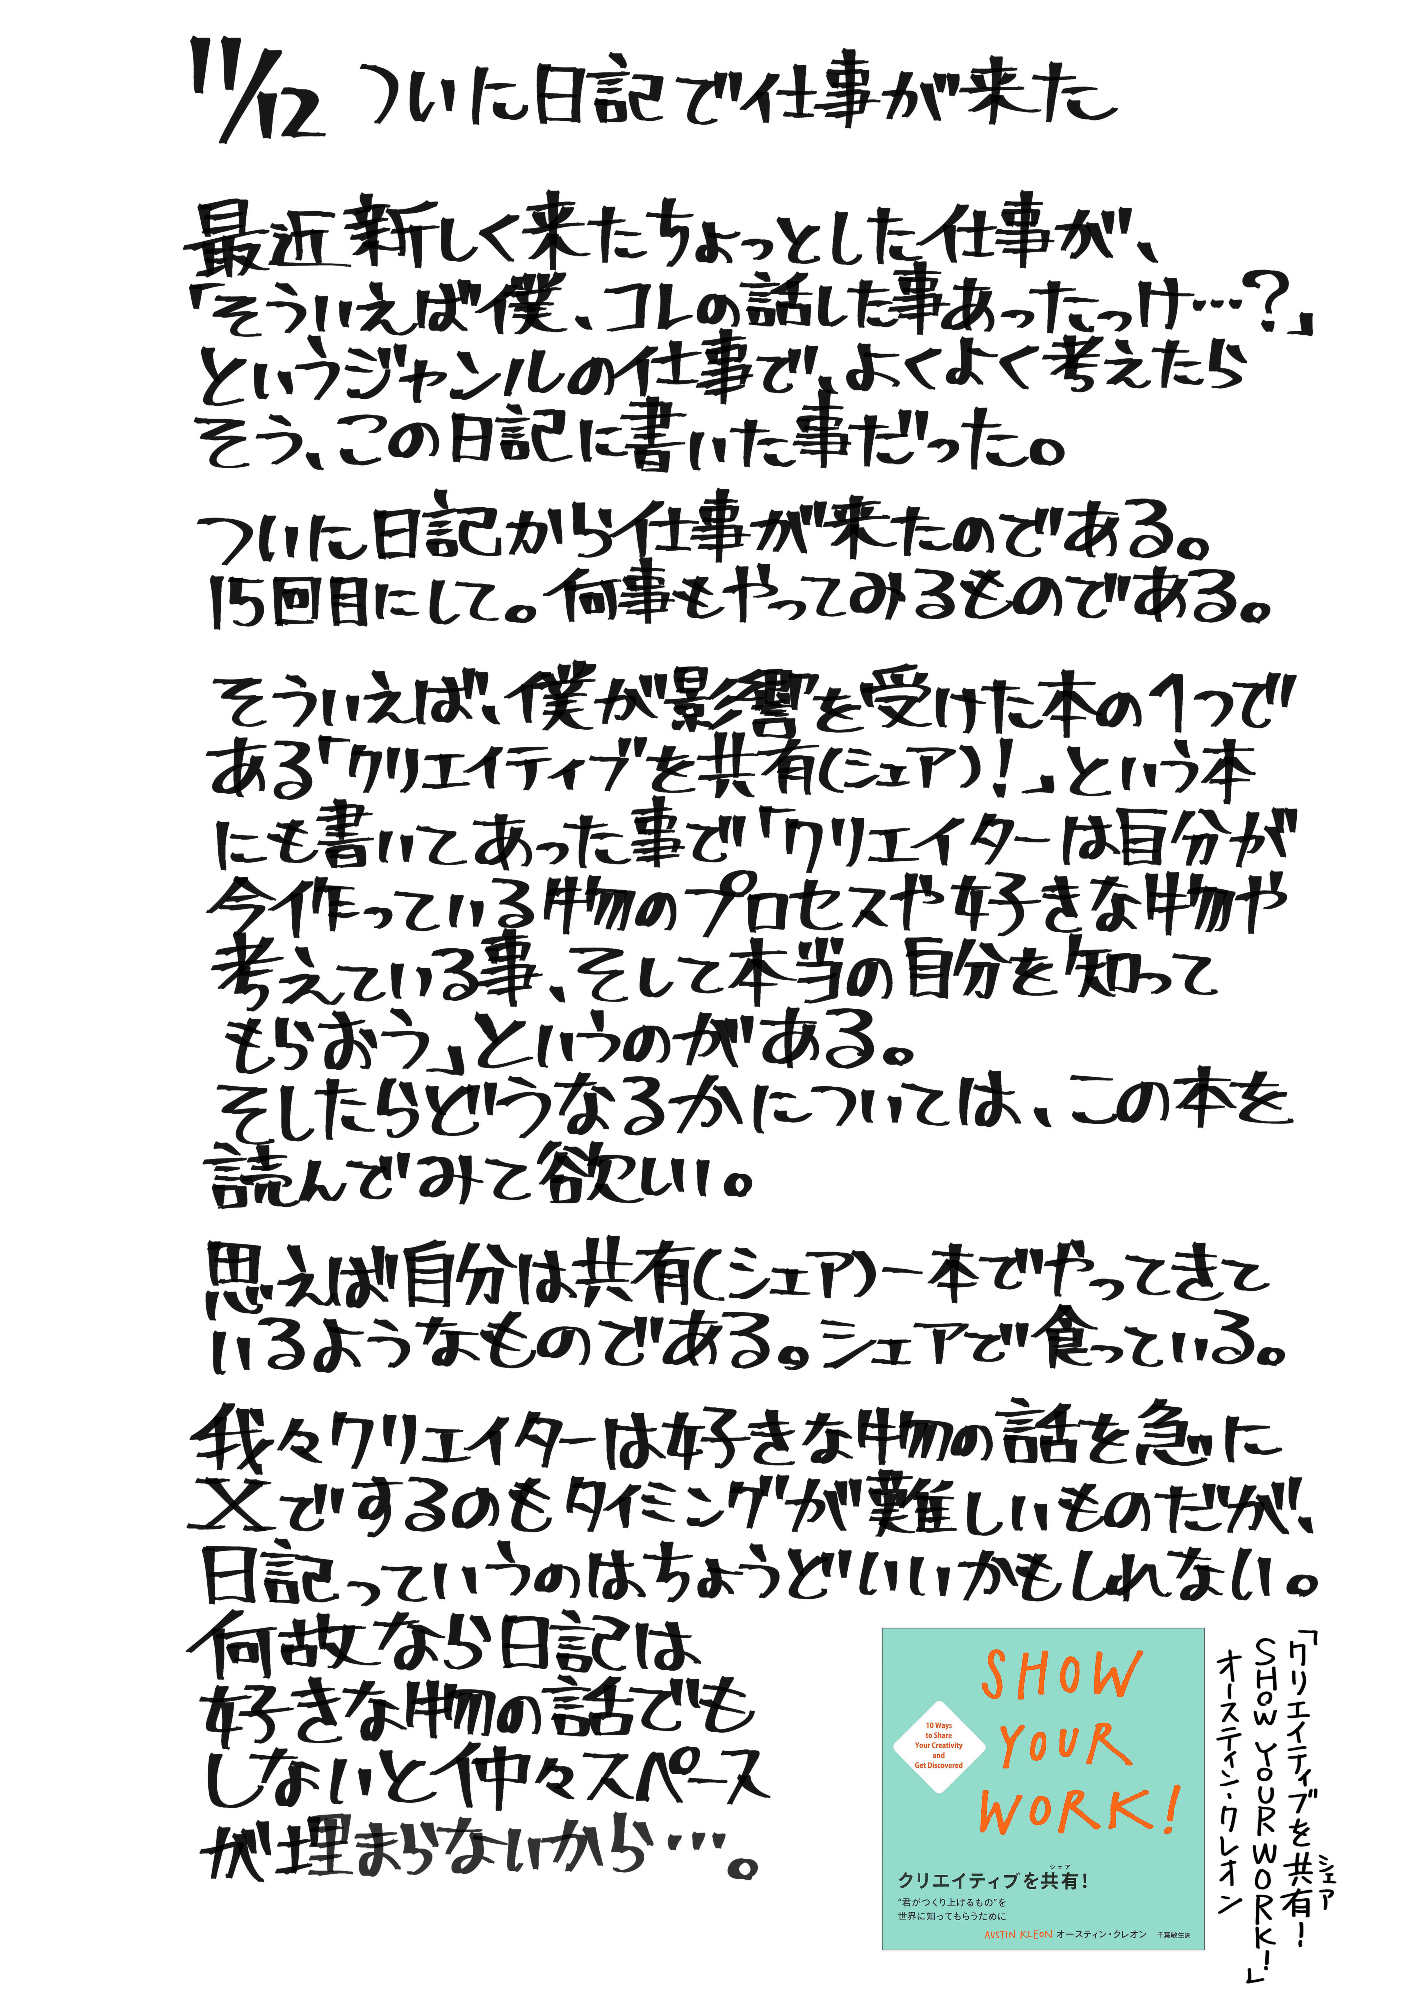 11/12 ついに日記で仕事が来た
最近新しく来たちょっとした仕事が、
「そういえば僕、コレの話した事あったっけ…?」
というジャンルの仕事で、よくよく考えたら
そう、この日記に書いた事だった。
ついに日記から仕事が来たのである。
15回目にして。何事もやってみるものである。
そういえば、僕が影響を受けた本の1つで
ある「クリエイティブを共有(シェア)!」という本
にも書いてあった事で「クリエイターは自分が
今作っている物のプロセスや好きな物や
考えている事、そして本当の自分を知って
もらおう」というのがある。
そしたらどうなるかについては、この本を
読んでみて欲しい。
思えば自分は共有(シェア)一本でやってきて
いるようなものである。シェアで食っている。
我々クリエイターは好きな物の話を急に
Xでするのもタイミングが難しいものだが、
日記っていうのはちょうどいいかもしれない。
何故なら日記は
好きな物の話でも
しないと仲々スペース
が埋まらないから…。
SHOW
YOUR
WORK!
10 Ways
to Share
Your Creativity
and
Get Discovered
シェア
クリエイティブを共有!
“君がつくり上げるもの”を
世界に知ってもらうために
AUSTIN KLEON オースティン・クレオン 千葉敏生訳
「クリエイティブを共有!
シェア
SHOW YOUR WORK!」
オースティン・クレオン